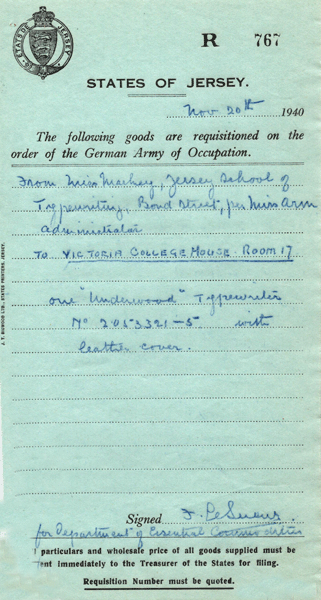 STATES OF JERSEY
R 767
STATES OF JERSEY.
Nov 20th 1940
The following goods are requisitioned on the
order of the German Army of Occupation.
From Miss Mackay, Jersey School of
Typewriting, Bond Street, per Miss Arm
Administrator
To VICTORIA COLLEGE HOUSE ROOM 17
one "Underwood" Typewriter
No 2053321-5 with
leather cover.
Signed F. Le
for Department of Essential Commodities
particulars and wholesale price of all goods supplied must be
ent immediately to the Treasurer of the States for filing.
Requisition Number must be quoted.